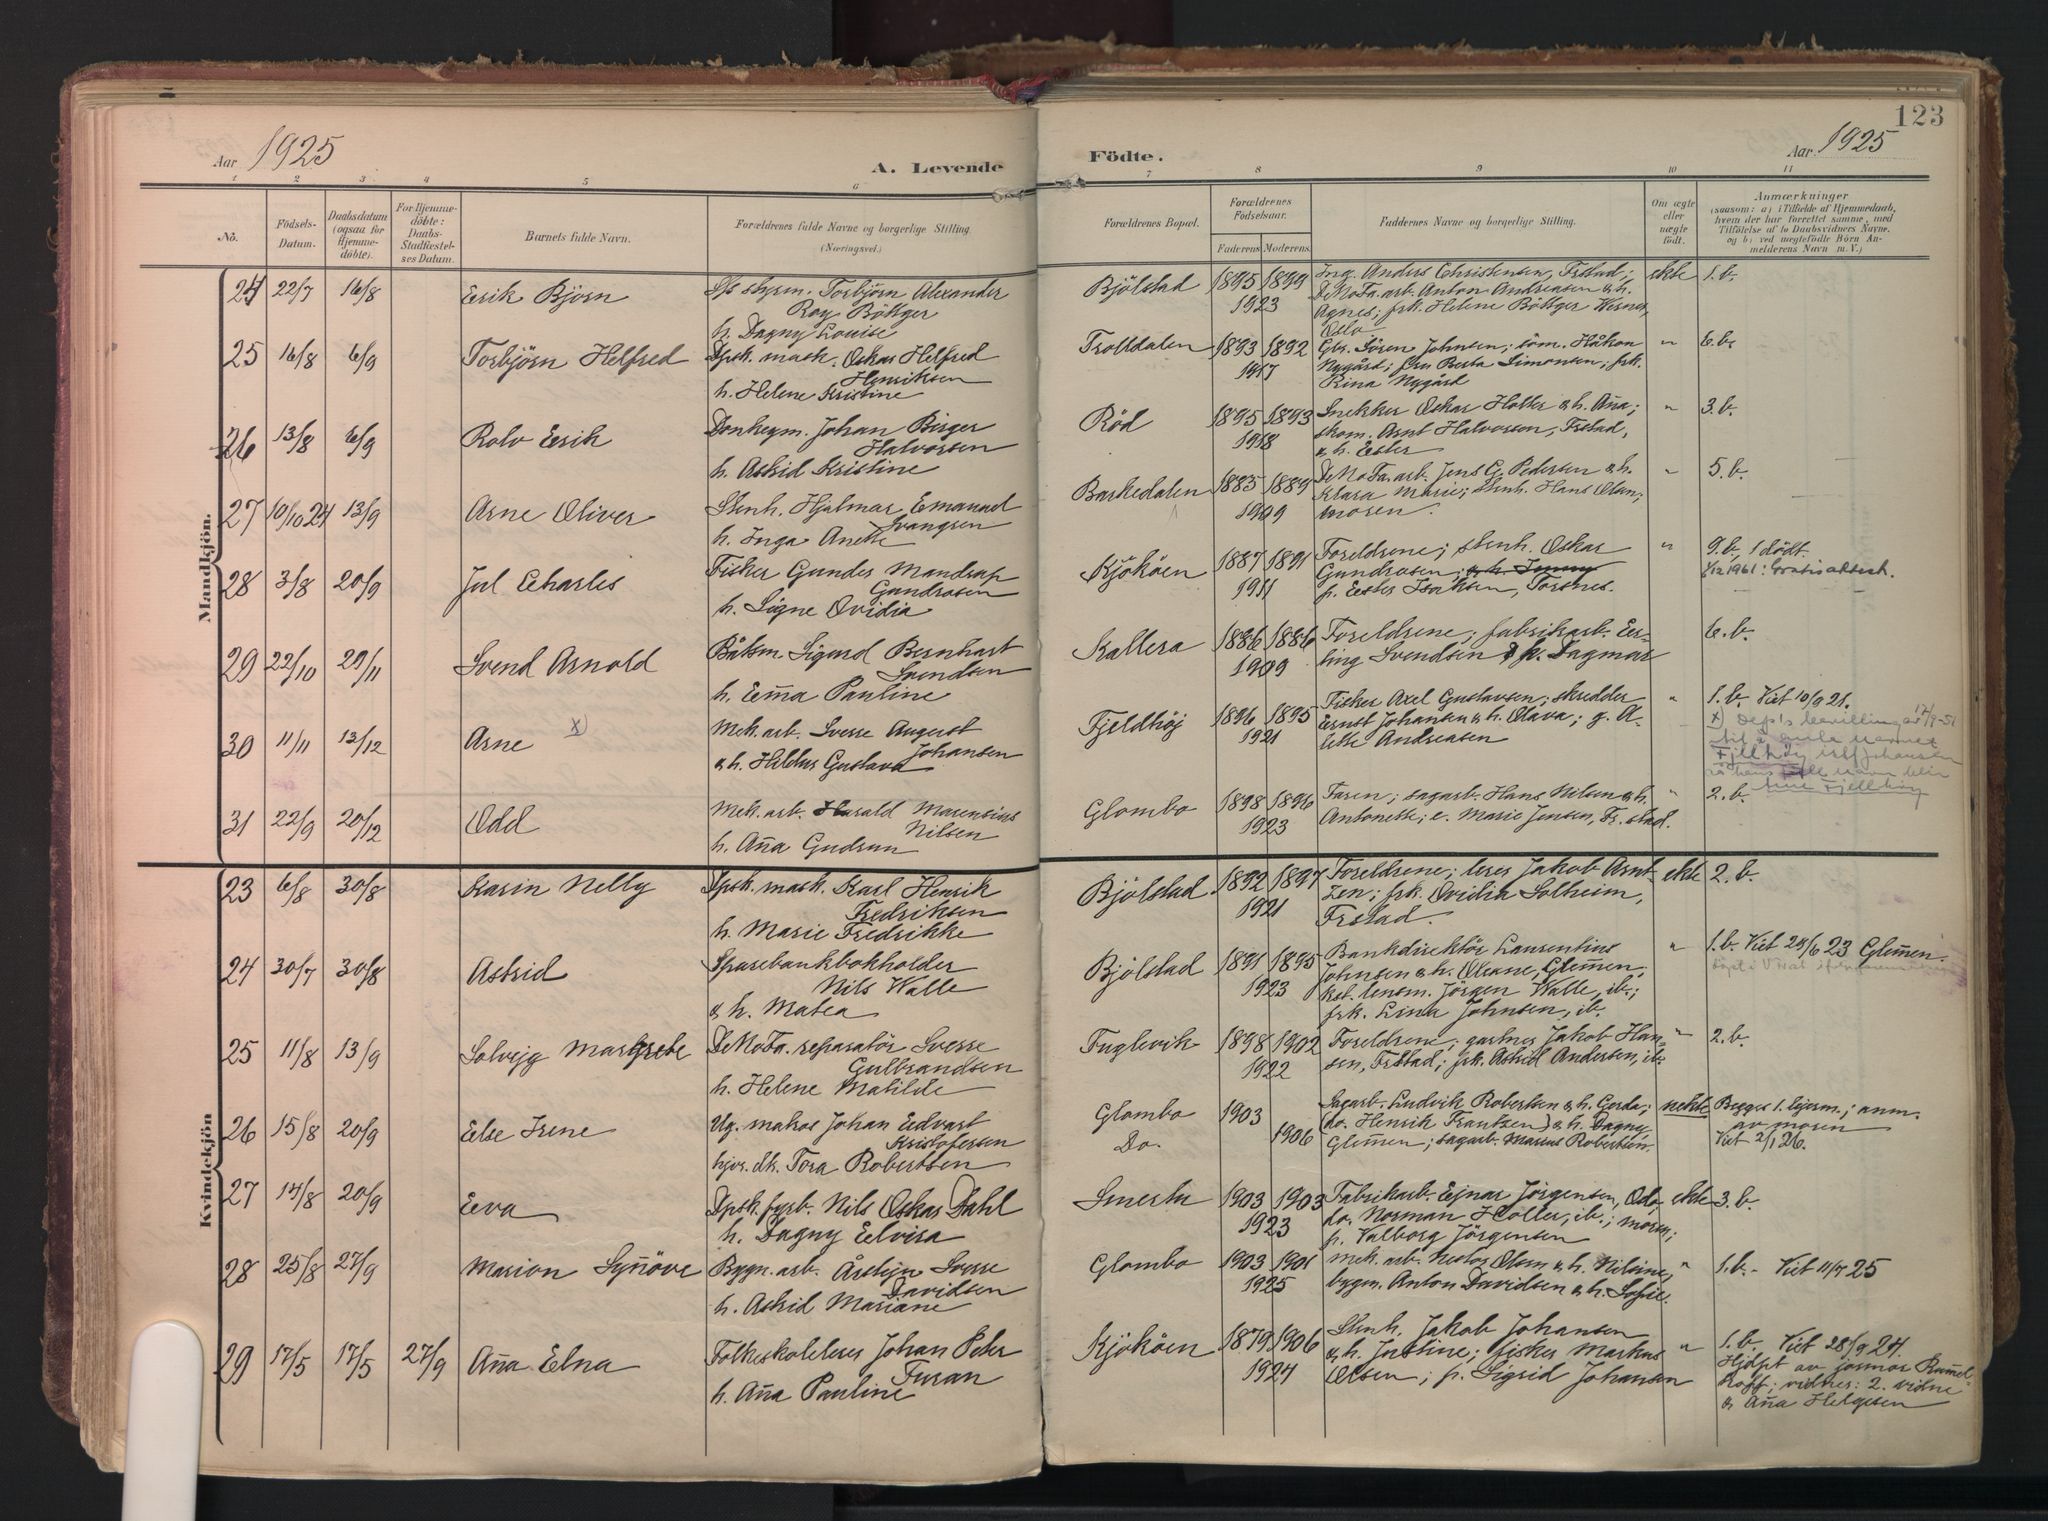 123
Aar 1925
A. Levende
Födte.
Aar 1925
1 2 3 4 5 6 7 8 9 10 11
No.
Födsels-Datum.
Daabsdatum (ogsaa for Hjemmedöbte).
For Hjemmedöbte: Daabs-Stadfæstelses Datum.
Barnets fulde Navn.
Forældrenes fulde Navne og borgerlige Stilling. (Næringsvei.)
Forældrenes Bopæl.
Forældrenes Födselsaar.
Faderens. Moderens.
Faddernes Navne og borgerlige Stilling.
Om ægte eller uægte födt.
Anmærkninger
(saasom: a) i Tilfælde af Hjemmedaab, hvem der har forrettet samme, med Tilföielse af to Daabsvidners Navne, og b) ved uægtefödte Börn Anmelderens Navn m. V.)
Mandkjön.
24 22/7 16/8 Erik Björn
styrm. Torbjörn Alexander
Roy Böttger
h. Dagny Louise
Bjölstad 1895 1899
1923
Ing. Anders Christensen, Frstad;
DeNoFa. arb. Anton Andreasen & h.
Agnes; frk. Helene Böttger Wesnes,
Oslo
ekte 1.b.
25 16/8 6/9 Torbjörn Helfred
Dpsk. mask. Oskar Helfred
Henriksen
h. Helene Kristine
Trolldalen 1893 1892
1917
Gbr. Sören Johnsen; töm. Håkon
Nygård; fru Berta Simonsen; frk.
Rina Nygård
" 6.b.
26 13/8 6/9 Rolv Erik
Donkeym. Johan Birger
Halvorsen
h. Astrid Kristine
Röd 1895 1893
1918
Snekker Oskar Holter & h. Aña;
skom. Arnt Halvorsen, Frstad,
& h. Ester
" 3.b.
27 10/10 24 13/9 Arne Oliver
Stenh. Hjalmar Emanuel
Svangsen
h. Inga Anette
Barkedalen 1885 1889
1909
DeNoFa. arb. Jens G. Pedersen & h.
Klara Marie; stenh. Hans Olsen;
moren.
" 5.b.
28 3/8 20/9 Jul Charles
Fisker Gunder Mandrup
Gundrosen
h. Signe Ovidia
Kjököen 1887 1891
1911
Foreldrene; stenh. Oskar
Gundrosen; & h. Jenny
p. Ester Isaksen, Torsnes.
" 9.b. 1 dödt.
1/12 1961: Gratis attest.
29 22/10 29/11 Svend Arnold
Båtsm. Sigurd Bernhart
Svendsen
h. Em̃a Pauline
Kallera 1886 1886
1909
Foreldrene; fabrikarb. Er-
ling Svendsen & p. Dagmar
6.b.
30 11/11 13/12 Arne x)
Mek. arb. Sverre August
Johansen
& h. Hildur Gustava
Fjeldhöj 1896 1895
1921
Fisker Axel Gustavsen; skredder
Ernst Johansen & h. Olava; g. A-
lette Andreasen
" 1.b. Viet 10/9 21.
x) Dep's bevilling av 17/9-51
til å anta navnet
Fjellhöy istf Johansen
så hans fulle navn blir
Arne Fjellhöy
31 22/9 20/12 Odd
Mek. arb. Harald Marensius
Nilsen
h. Aña Gudrun
Glombo 1898 1896
1923
Faren; sagarb. Hans Nilsen & h.
Antonette; e. Marie Jensen, Fr.stad.
" 2.b.
Kvindekjön
23 6/8 30/8 Karin Nelly
Dpsk. mask. Karl Henrik
Fredriksen
h. Marie Fredrikke
Bjölstad 1892 1897
1921
Foreldrene; lerer Jakob Arnt-
zen; frk. Ovidia Solheim,
Frstad.
ekte 2.b.
24 30/7 30/8 Astrid
Sparebankbokholder
Nils Walle
& h. Matea
Bjölstad 1891 1895
1923
Bankdirektör Laurentius
Johnsen & h. Olrane, Glem̃en;
kst. lensm. Jörgen Walle, ib.;
frk. Lina Johnsen, ib.
" 1.b. Viet 28/6 23 Glem̃en.
25 11/8 13/9 Solvejg Margrete
DeNoFa. reparatör Sverre
Gulbrandsen
h. Helene Matilde
Fuglevik 1898 1902
1922
Foreldrene; gartner Jakob Han-
sen, Frstad; frk. Astrid Andersen, ib.
" 2.b.
26 15/8 20/9 Else Irene
Ug. matros Johan Edvart
Kristofersen
hjv. dt. Tora Robertsen
Glombo 1903
Do. 1906
Sagarb. Ludvik Robertsen & h. Gerda;
do. Henrik Frantzen & h. Dagny
Glem̃en; sagarb. Marius Robertsen.
uekte Begges 1. lejerm.; anm.
av moren
Viet 2/1 26.
27 14/8 20/9 Eva
Dpsk. fyrb. Nils Oskar Dahl
h. Dagny Elvira
Smertu 1903 1903
1923
Fabrikarb. Ejnar Jörgensen, Oslo,
do. Norman Holler, ib.; moren;
p. Valborg Jörgensen
ekte 3.b.
28 25/8 27/9 Marion Syñöve
Bygn. arb. Asbjn Sverre
Davidsen
h. Astrid Mariane
Glombo 1903 1901
1925
Mek. arb. Nestor Olsen & h. Nilsine;
bygm. Anton Davidsen & h. Sofie.
" 1.b. - Viet 11/7 25
29 17/5 17/5 27/9 Aña Elna
Folkeskolelerer Johan Peter
Furan
h. Aña Pauline
Kjököen 1879 1906
1924
Stenh. Jakob Johansen
& h. Justine; fisker Markus
Olsen; p. Sigrid Johansen
" 1.b. Viet 28/9 24.
Hjdpt av jormor Rum̃el-
hoff; vidner: 2. vidne
& Aña Helgesen